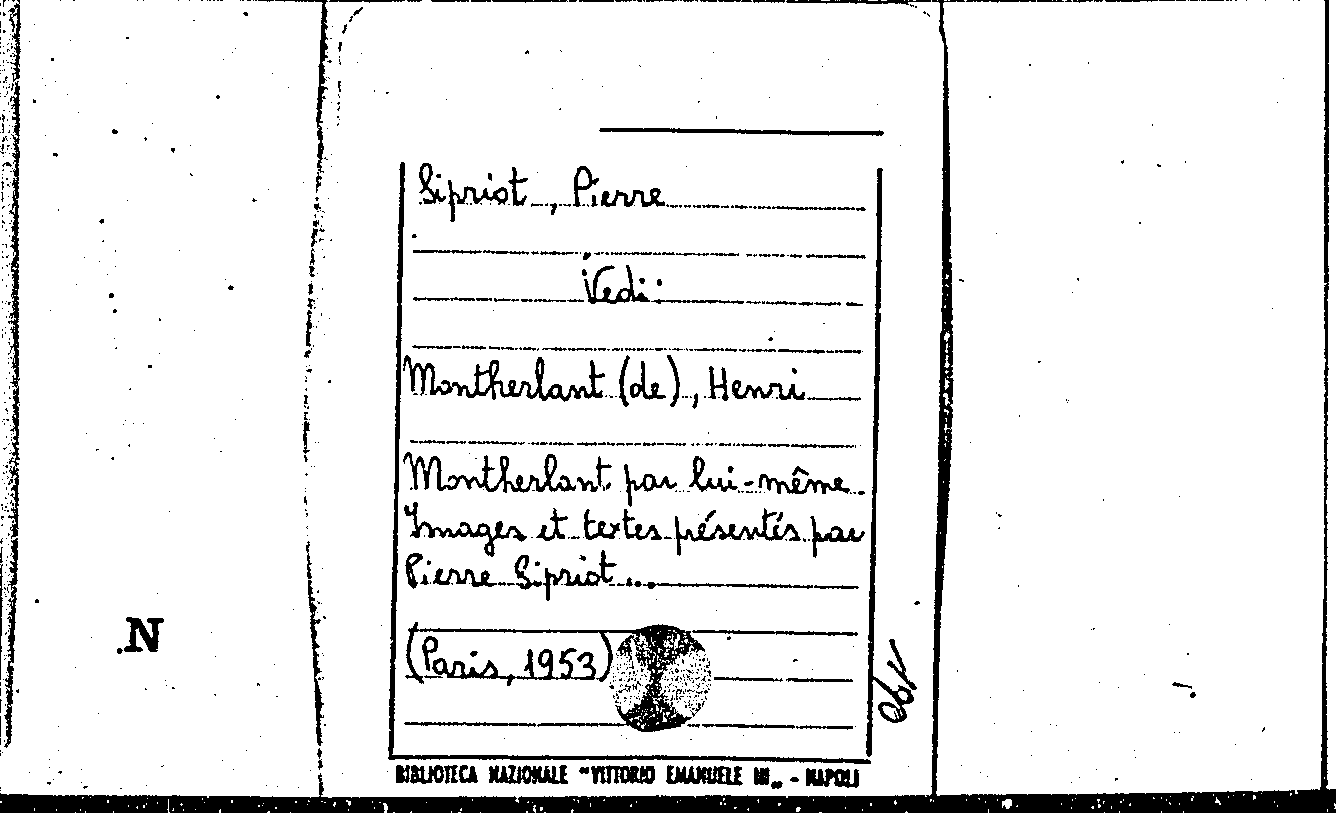 Sipriot, Pierre
Vedi:
Montherlant (de), Henri
Montherlant par lui-même.
Images et textes présentés par
Pierre Sipriot...
(Paris, 1953)
N
BIBLIOTECA NAZIONALE "VITTORIO EMANUELE III„ - NAPOLI